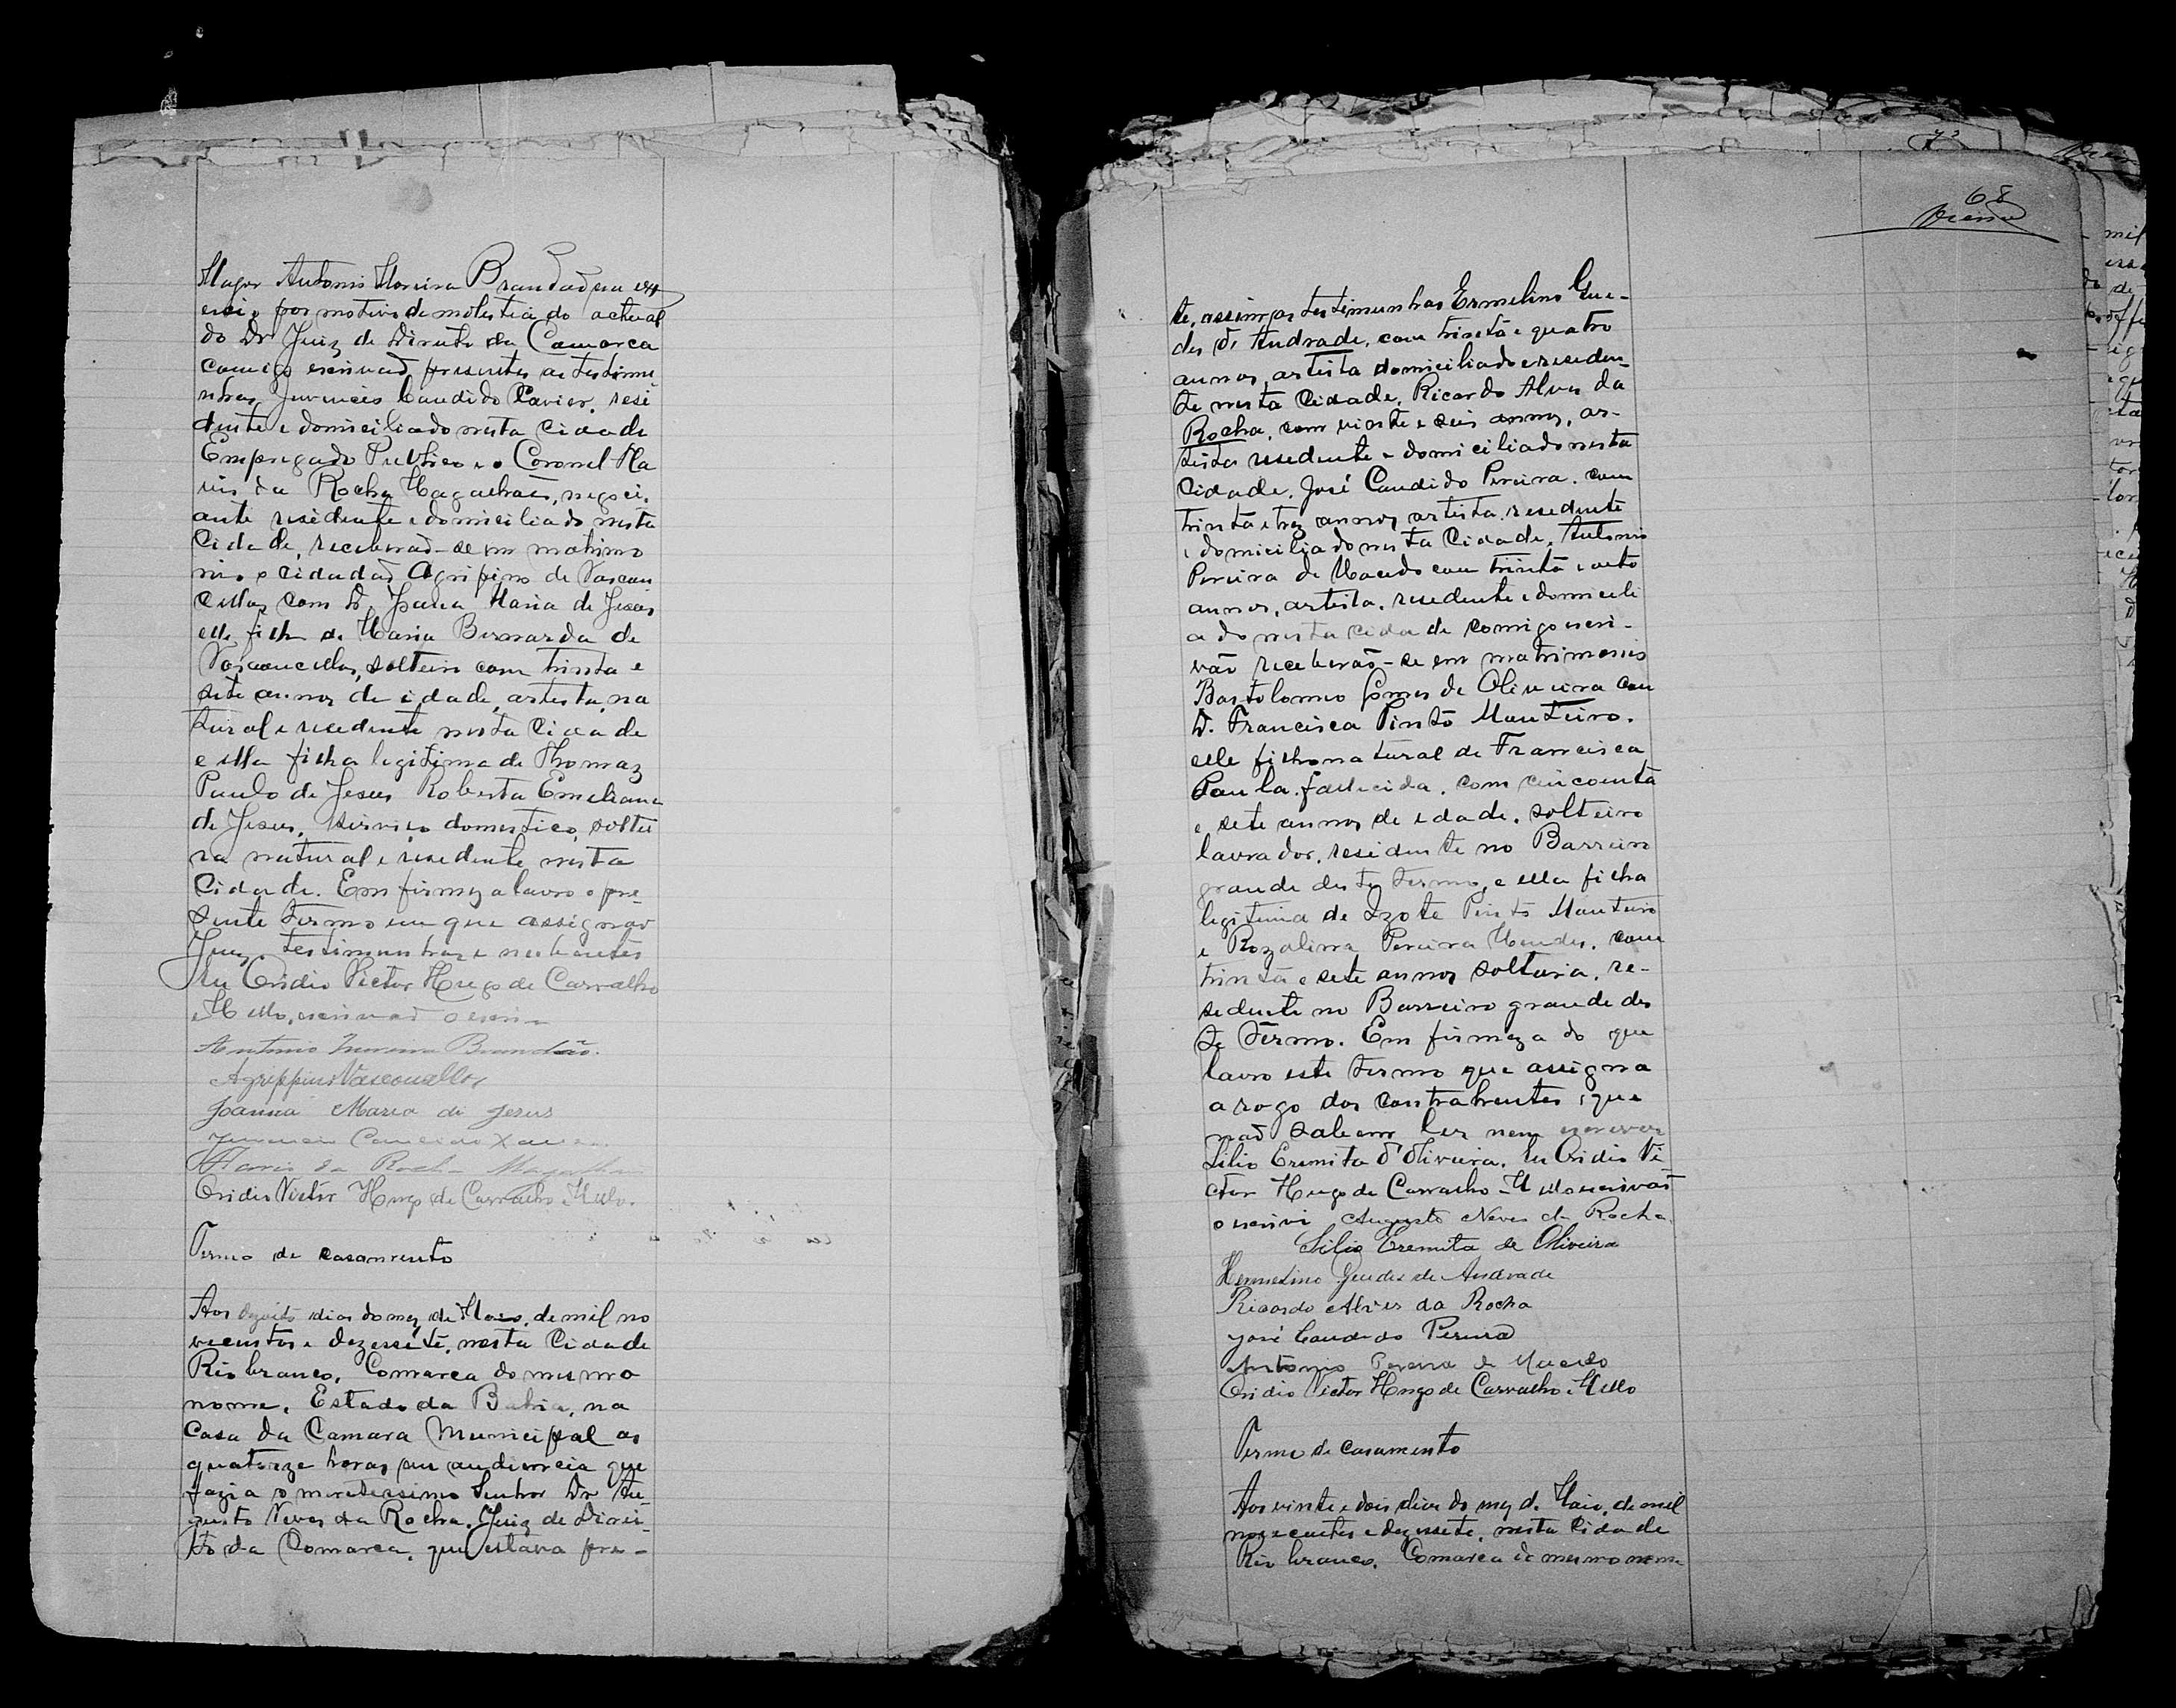 Major Antonio Moreira Brandaõ em ex
ercio por motivo de molestia do actual
do Dr Juiz de Direito da Comarca
comigo escrivaõ presentes as testimu
nhas Juvencio Candido Xavier, resi
dente e domiciliado nesta Cidade
Empregado Publico e o Coronel Fla
vio da Rocha Magalhaẽs, negoci.
ante residente e domiciliado nesta
Cidade, receberaõ-se em matrimo
nio o cidadaõ Agripino de Vascon
cellos com D. Joana Maria de Jesus
elle filho de Maria Bernarda de
Vasconcellos, solteiro com trinta e
sete annos de idade, artista, na
tural e residente nesta Cidade
e ella filha legitima de Thomaz
Paulo de Jesus Roberta Emeliana
de Jesus, serviço domestico, soltei
ra natural e residente nesta
Cidade. Em firmeza lavro o pre
sente termo em que assignaõ
Juiz, testimunhas e nubentes
Eu Ovidio Victor Hugo de Carvalho
e Mello, escrivaõ o escrivi
Antonio Moreira Brandão.
Agrippino Vasconcellos
Joanna Maria de Jesus
Juvencio Candido Xavier
Flavio da Rocha Magalhães
Ovidio Victor Hugo de Carvalho e Mello.
Termo de casamento
Aos dezoito dias do mez de Maio, de mil no
vecentos e dezessete, nesta Cidade
Rio branco, Comarca do mesmo
nome, Estado da Bahia, na
Casa da Camara Municipal as
quatorze horas em audiencia que
fazia o meretissimo Senhor Dr Au-
gusto Neves da Rocha, Juiz de Direi-
to da Comarca, que estava pre-
68
te, assim as testimunhas Ermelino Gue-
des de Andrade, com trinta e quatro
annos, artista domiciliado e residen-
te nesta Cidade, Ricardo Alves da
Rocha, com vinte e seis annos, ar-
tista residente e domiciliado nesta
Cidade, José Candido Pereira, com
trinta e trez annos artista, residente
e domiciliado nesta Cidade, Antonio
Pereira de Macedo com trinta e oito
annos, artista, residente e domicili
ado nesta cidade comigo escri-
vão receberão-se em matrimonio
Bartolomeo Gomes de Oliveira com
D. Francisca Pinto Monteiro.
elle filho natural de Francisca
Paula, fallecida, com cincoenta
e sete annos de edade, solteiro
lavrador, residente no Barreiro
grande deste termo, e ella filha
legitima de Izote Pinto Monteiro
e Rozalina Pereira Mendes, com
trinta e sete annos solteira, re-
sedente no Barreiro grande des
te Termo. Em firmeza do que
lavro este termo que assigna
a rogo dos contrahentes, que
naõ sabem ler nem escrever
Lilio Eremita d'Oliveira. Eu Ovidio Vi
ctor Hugo de Carvalho e Mello escrivaõ
o escrivi Augusto Neves da Rocha
Lilio Eremita de Oliveira
Hermelino Guedes de Andrade
Ricardo Alves da Rocha
José Candido Pereira
Antonio Pereira de Macedo
Ovidio Victor Hugo de Carvalho e Mello
Termo de casamento
Aos vinte e dois dias do mez de Maio, de mil
novecentos e dezessete, nesta Cidade
Rio branco, Comarca do mesmo nome